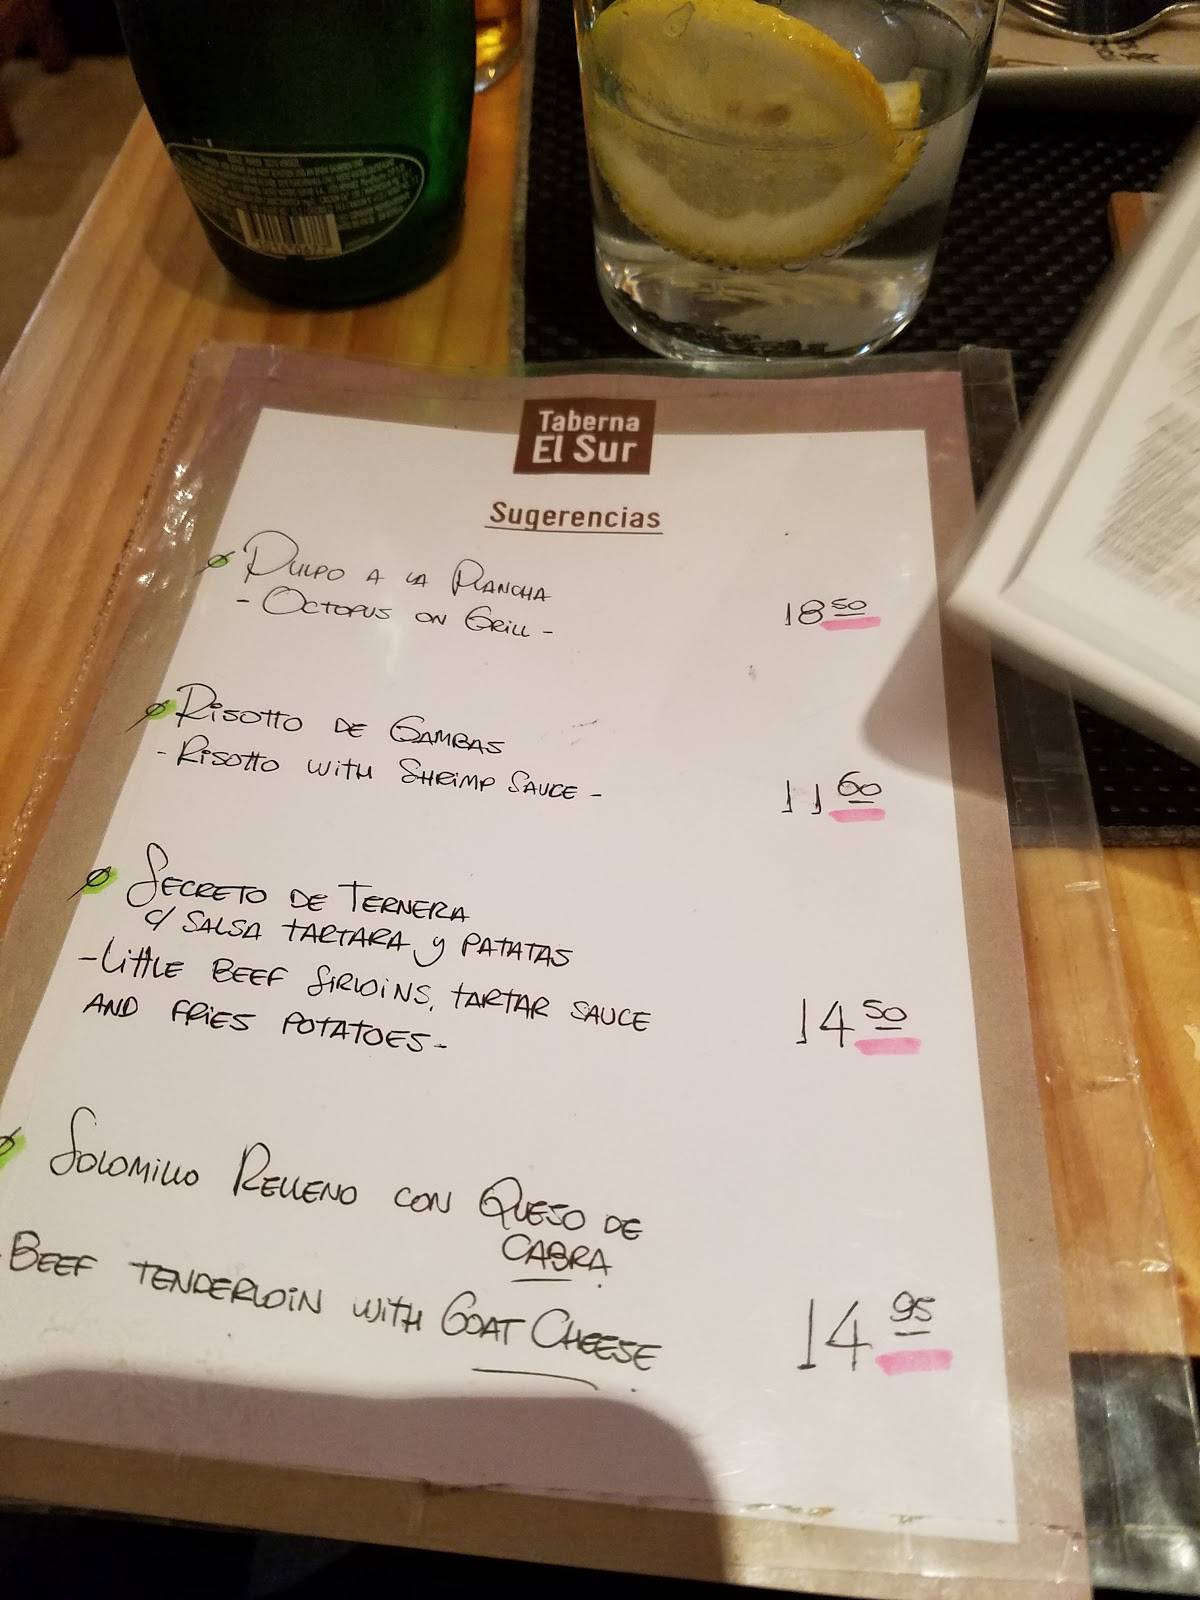 Taberna
El Sur
Sugerencias
Pulpo a la Plancha
- Octopus on Grill -
18 50
Risotto de Gambas
- Risotto with Shrimp Sauce -
11 60
Secreto de Ternera
c/ salsa tartara y patatas
- Little beef sirloins, tartar sauce
and fries potatoes -
14 50
Solomillo Relleno con Queso de
Cabra
- Beef tenderloin with Goat Cheese
14 95